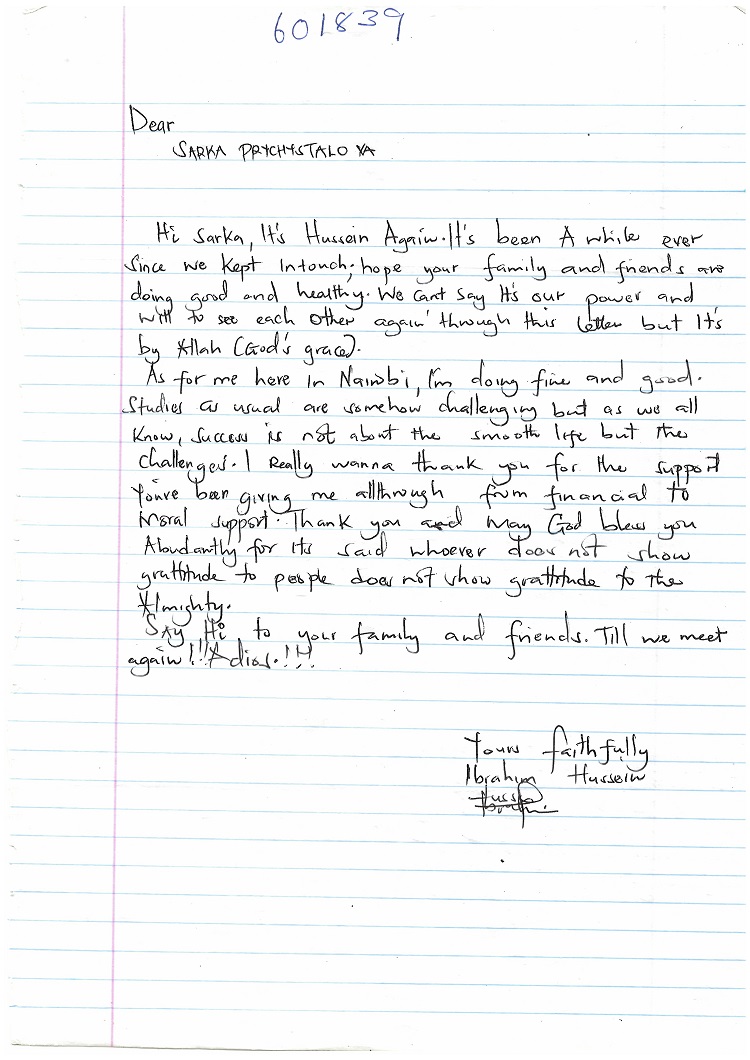 601839
Dear
SARKA PRYCHYSTALOVA
Hi Sarka, It's Hussein Again. It's been A while ever
Since we kept Intouch; hope your family and friends are
doing good and healthy. We cant say It's our power and
will to see each other again through this letter but It's
by Allah (God's grace).
As for me here in Nairobi, I'm doing fine and good.
Studies as usual are somehow challenging but as we all
know, success is not about the smooth life but the
challenges. I Really wanna thank you for the support
You've been giving me allthrough from financial to
Moral support. Thank you and May God bless you
Abundantly for its said whoever does not show
grattitude to people does not show grattitude to the
Almighty.
Say Hi to your family and friends. Till we meet
again!!! Adios.!!!
Yours faithfully
Ibrahim Hussein